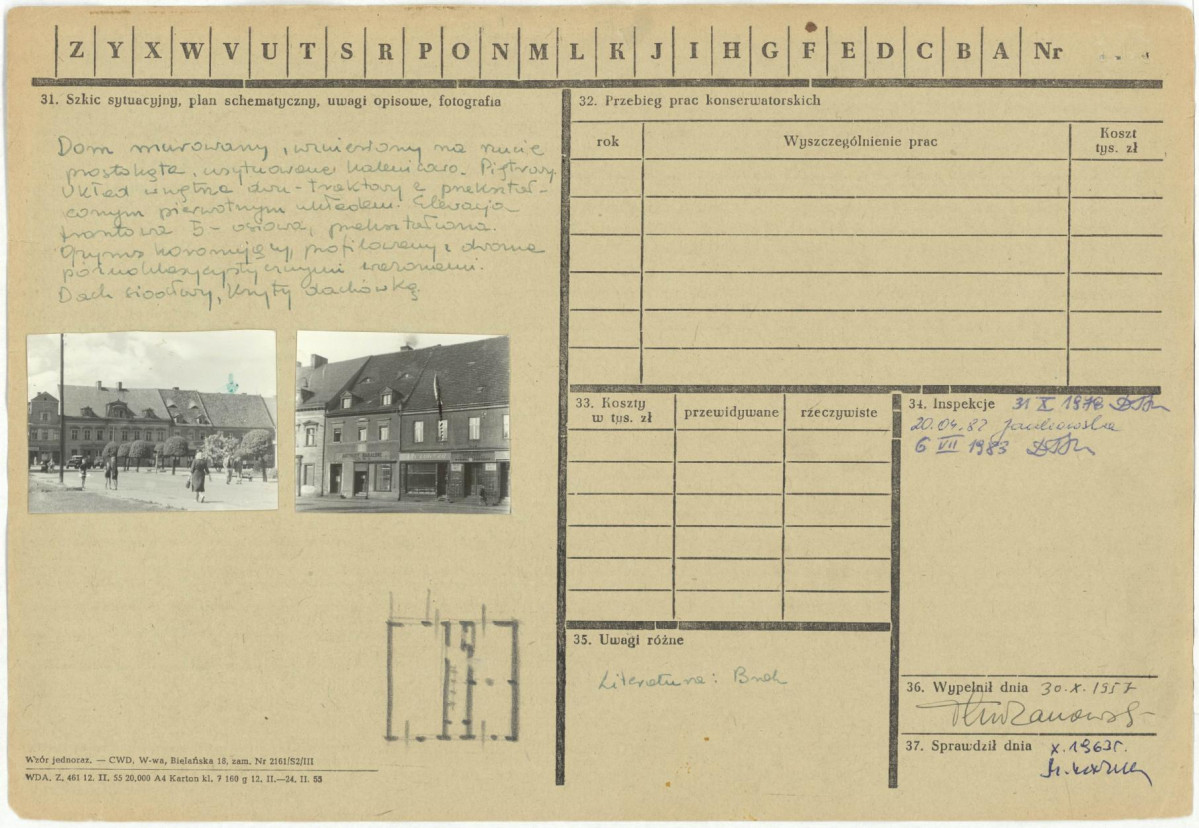 Z Y X W V U T S R P O N M L K J I H G F E D C B A Nr
31. Szkic sytuacyjny, plan schematyczny, uwagi opisowe, fotografia
Dom murowany, wzniesiony na rzucie
prostokąta, usytuowany kalenicowo. Piętrowy.
Układ wnętrza dwu-traktowy z przekształ-
conym pierwotnym układem. Elewacja
frontowa 5-osiowa, przekształcona.
Gzyms koronujący, profilowany z dwoma
późnoklasycystycznymi wazonami.
Dach siodłowy, kryty dachówką.
Wzór jednoraz. — CWD, W-wa, Bielańska 18, zam. Nr 2161/S2/III
WDA. Z. 461 12. II. 55 20.000 A4 Karton kl. 7 160 g 12. II.—24. II. 55
32. Przebieg prac konserwatorskich
rok Wyszczególnienie prac Koszt
tys. zł
33. Koszty
w tys. zł przewidywane rzeczywiste
34. Inspekcje 31 X 1978
20.04.82 Jankowska
6 VII 1983
35. Uwagi różne
Literatura: Brak
36. Wypełnił dnia 30.X.1957
37. Sprawdził dnia X.1963r.